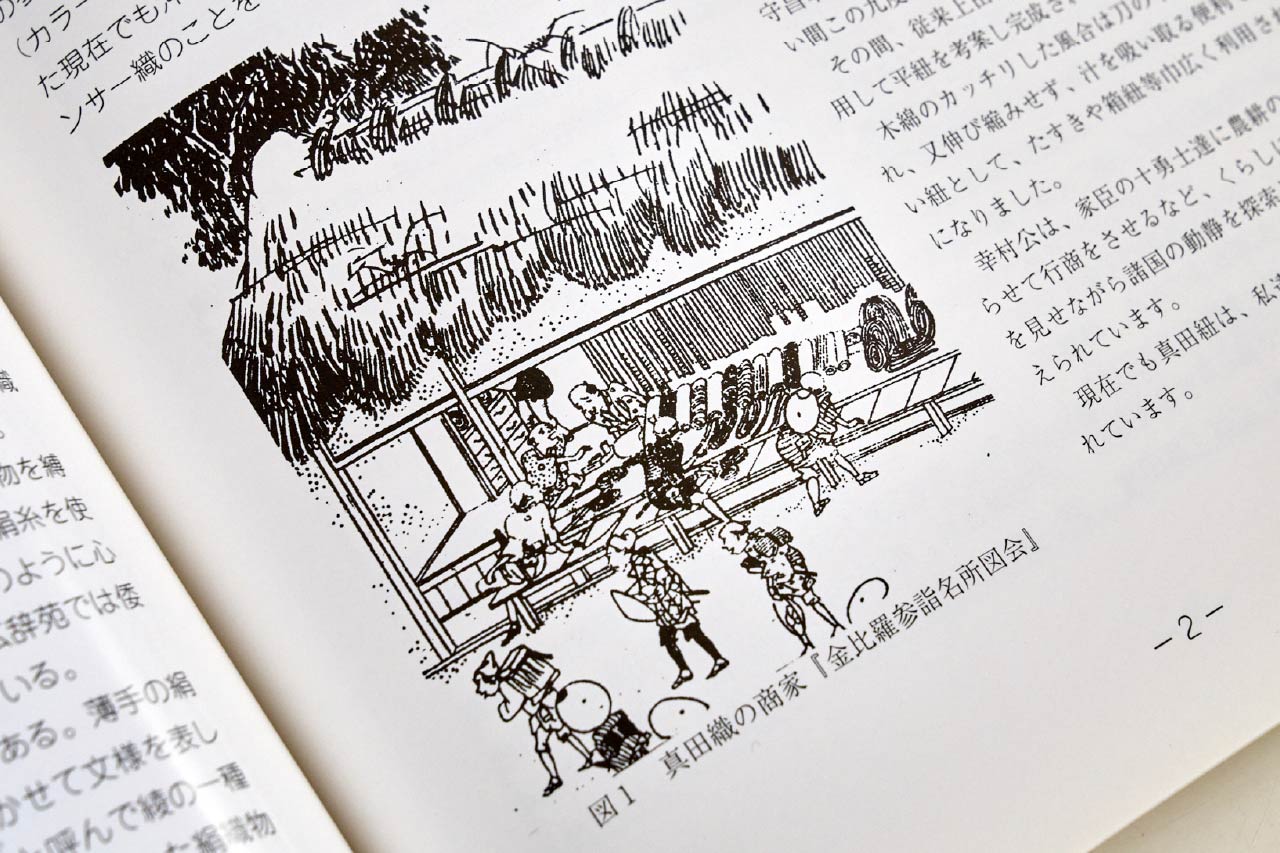 職
物を縛
絹糸を使
のように心
辞苑では倭
いる。
ある。薄手の絹
かせて文様を表し
呼んで綾の一種
た絹織物
(カラー
た現在でも
ンサー織のことを
図1　真田織の商家『金比羅参詣名所図会』
守昌
い間この九度
その間、従来上田
用して平紐を考案し完成さ
木綿のカッチリした風合は刀の
れ、又伸び縮みせず、汁を吸い取る便利
い紐として、たすきや箱紐等巾広く利用さ
になりました。
幸村公は、家臣の十勇士達に農耕の
らせて行商をさせるなど、くらし
を見せながら諸国の動静を探索
えられています。
現在でも真田紐は、私
れています。
−2−